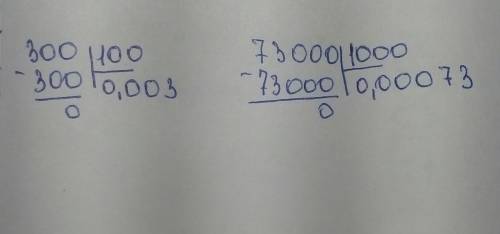 300 100
-300 0,003
0
73000 1000
-73000 0,00073
0